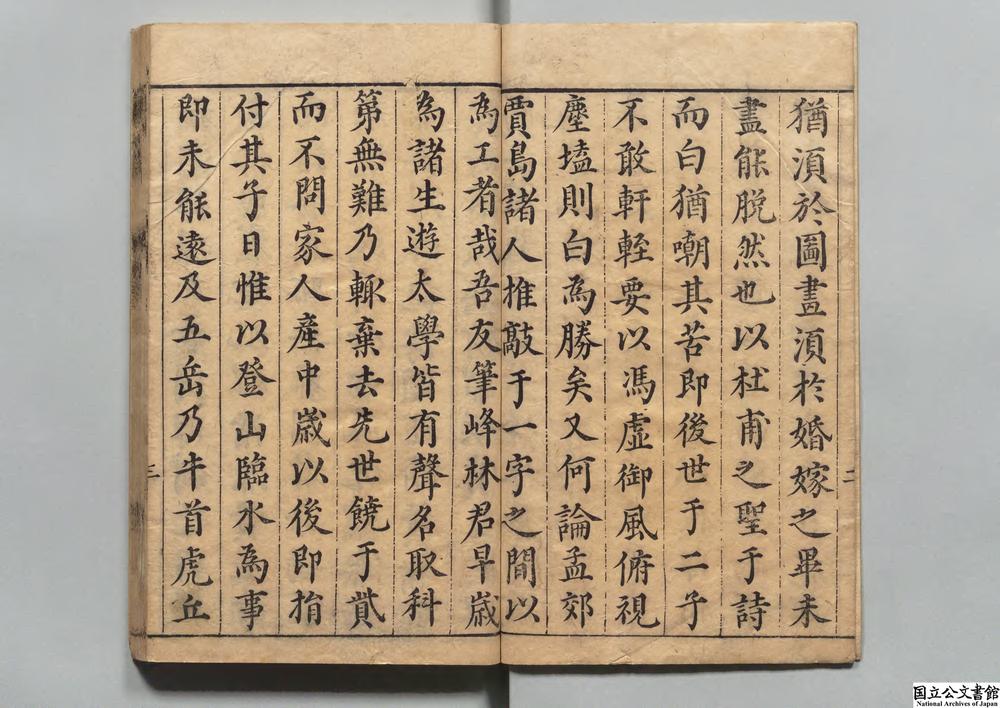 猶湏於圖畫湏於婚嫁之畢未
盡能脫然也以杜甫之聖于詩
而白猶嘲其苦即後世于二子
不敢軒輊要以馮虛御風俯視
塵壒則白為勝矣又何論孟郊
賈島諸人推敲于一字之間以
為工者哉吾友筆峰林君早歲
為諸生遊太學皆有聲名取科
第無難乃輙棄去先世饒于貲
而不問家人產中歲以後即捐
付其子日惟以登山臨水為事
即未能遠及五岳乃牛首虎丘
二
三
国立公文書館
National Archives of Japan